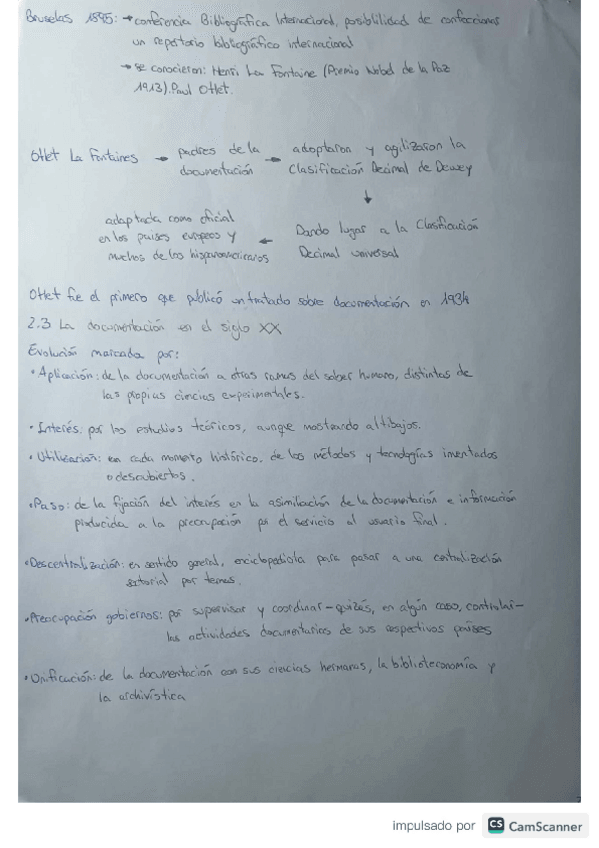 Bruselas 1895: → conferencia Bibliográfica Internacional, posibilidad de confeccionar
un repertorio bibliográfico internacional
→ se conocieron: Henri La Fontaine (Premio Nobel de la Paz
1913). Paul Otlet.
Otlet La Fontaines → padres de la → adoptaron y agilizaron la
documentación Clasificación Decimal de Dewey
↓
adaptada como oficial
en los países europeos y ← Dando lugar a la Clasificación
muchos de los hispanoamericanos Decimal universal
Otlet fue el primero que publicó un tratado sobre documentación en 1934
2.3 La documentación en el siglo XX
Evolución marcada por:
• Aplicación: de la documentación a otras ramas del saber humano, distintas de
las propias ciencias experimentales.
• Interés: por los estudios teóricos, aunque mostrando altibajos.
• Utilización: en cada momento histórico, de los métodos y tecnologías inventados
o descubiertos.
• Paso: de la fijación del interés en la asimilación de la documentación e información
producida a la preocupación por el servicio al usuario final.
• Descentralización: en sentido general, para pasar a una centralización
por temas.
• Preocupación gobiernos: por supervisar y coordinar - quizás, en algún caso, controlar -
las actividades documentarias de sus respectivos países
• Unificación: de la documentación con sus ciencias hermanas, la biblioteconomía y
la archivística
impulsado por CS CamScanner